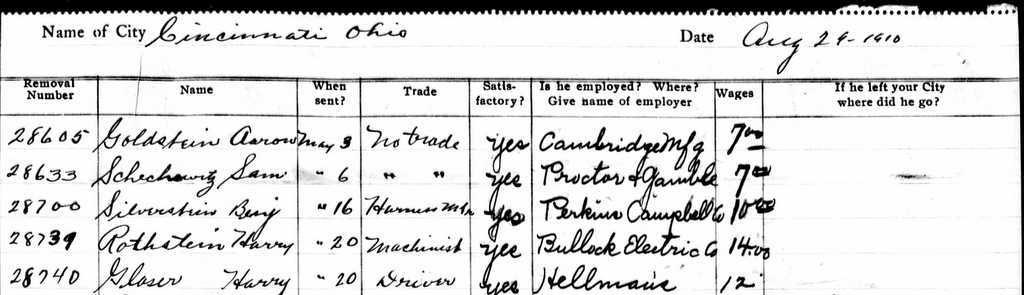 Name of City Cincinnati Ohio Date Aug 29-1910
Removal Number Name When sent? Trade Satis-factory? Is he employed? Where? Give name of employer Wages If he left your City where did he go?
28605 Goldstein Aaron May 3 No trade yes Cambridge Mfg 7.00
28633 Schechowitz Sam " 6 " " yes Proctor & Gamble 7.00
28700 Silverstein Benj " 16 Harness Mkr yes Perkins Campbell Co 10.00
28739 Rothstein Harry " 20 Machinist yes Bullock Electric Co 14.00
28740 Glaser Harry " 20 Driver yes Hellman's 12